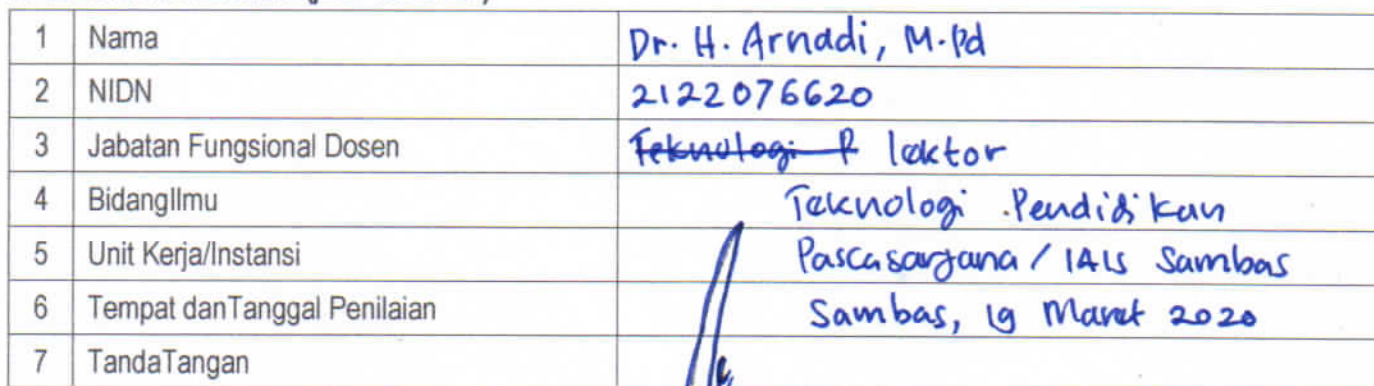 1 Nama Dr. H. Arnadi, M.Pd
2 NIDN 2122076620
3 Jabatan Fungsional Dosen Teknologi P lektor
4 BidangIlmu Teknologi Pendidikan
5 Unit Kerja/Instansi Pascasarjana / IAIS Sambas
6 Tempat danTanggal Penilaian Sambas, 19 Maret 2020
7 TandaTangan